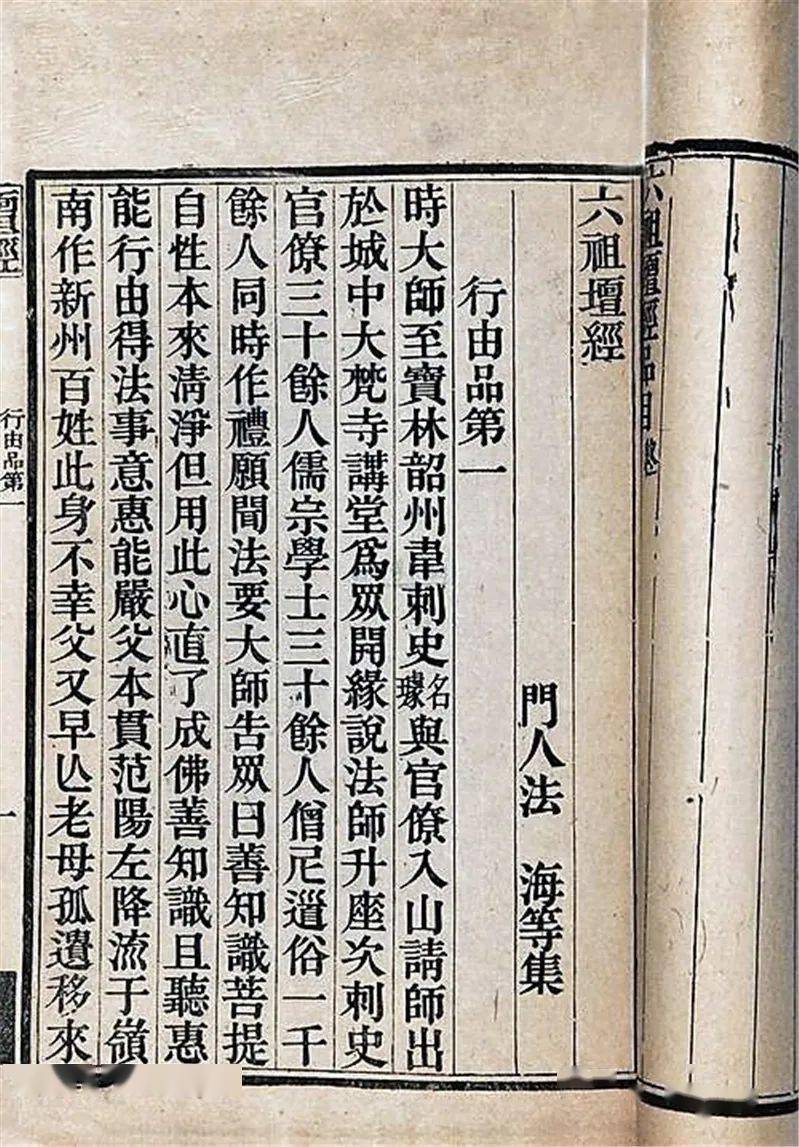 六祖壇經品目終
六祖壇經
門人法　海等集
行由品第一
時大師至寶林韶州韋刺史名璩與官僚入山請師出
於城中大梵寺講堂爲眾開緣說法師升座次刺史
官僚三十餘人儒宗學士三十餘人僧尼道俗一千
餘人同時作禮願聞法要大師告眾曰善知識菩提
自性本來淸淨但用此心直了成佛善知識且聽惠
能行由得法事意惠能嚴父本貫范陽左降流于嶺
南作新州百姓此身不幸父又早亾老母孤遺移來
壇經
行由品第一
一